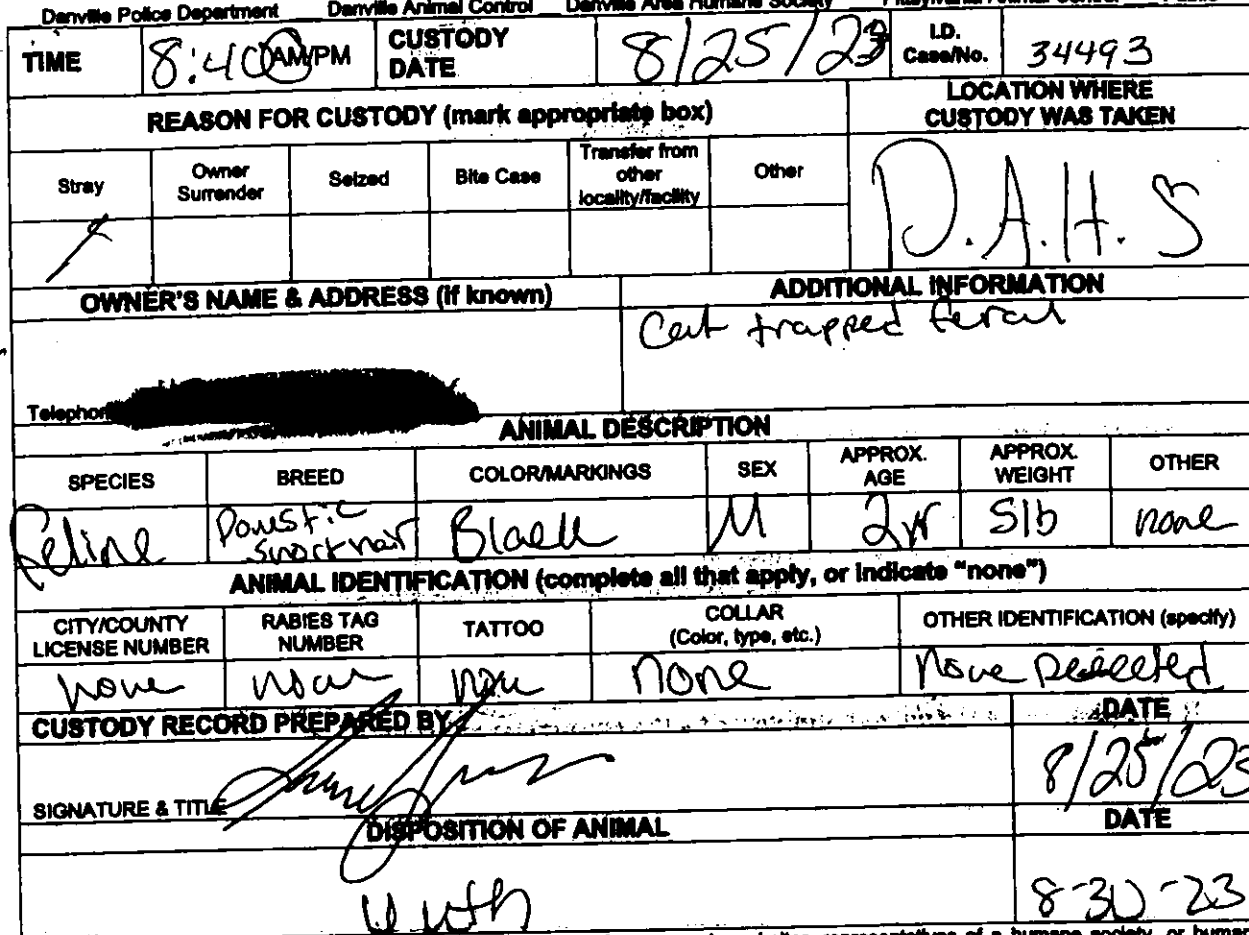 Danville Police Department Danville Animal Control Danville Area Humane Society Pittsylvania Animal Control Public
TIME 8:40 AM/PM CUSTODY DATE 8/25/23 I.D. Case/No. 34493
REASON FOR CUSTODY (mark appropriate box) LOCATION WHERE CUSTODY WAS TAKEN
Stray Owner Surrender Seized Bite Case Transfer from other locality/facility Other
D.A.H.S
OWNER'S NAME & ADDRESS (if known) ADDITIONAL INFORMATION
Cat trapped feral
Telephon
ANIMAL DESCRIPTION
SPECIES BREED COLOR/MARKINGS SEX APPROX. AGE APPROX. WEIGHT OTHER
Feline Domestic Shorthair Black M 2yr 5lb none
ANIMAL IDENTIFICATION (complete all that apply, or indicate "none")
CITY/COUNTY LICENSE NUMBER RABIES TAG NUMBER TATTOO COLLAR (Color, type, etc.) OTHER IDENTIFICATION (specify)
none none none none None Detected
CUSTODY RECORD PREPARED BY DATE
8/25/23
SIGNATURE & TITLE
DISPOSITION OF ANIMAL DATE
Euth 8-30-23
representatives of a humane society, or human